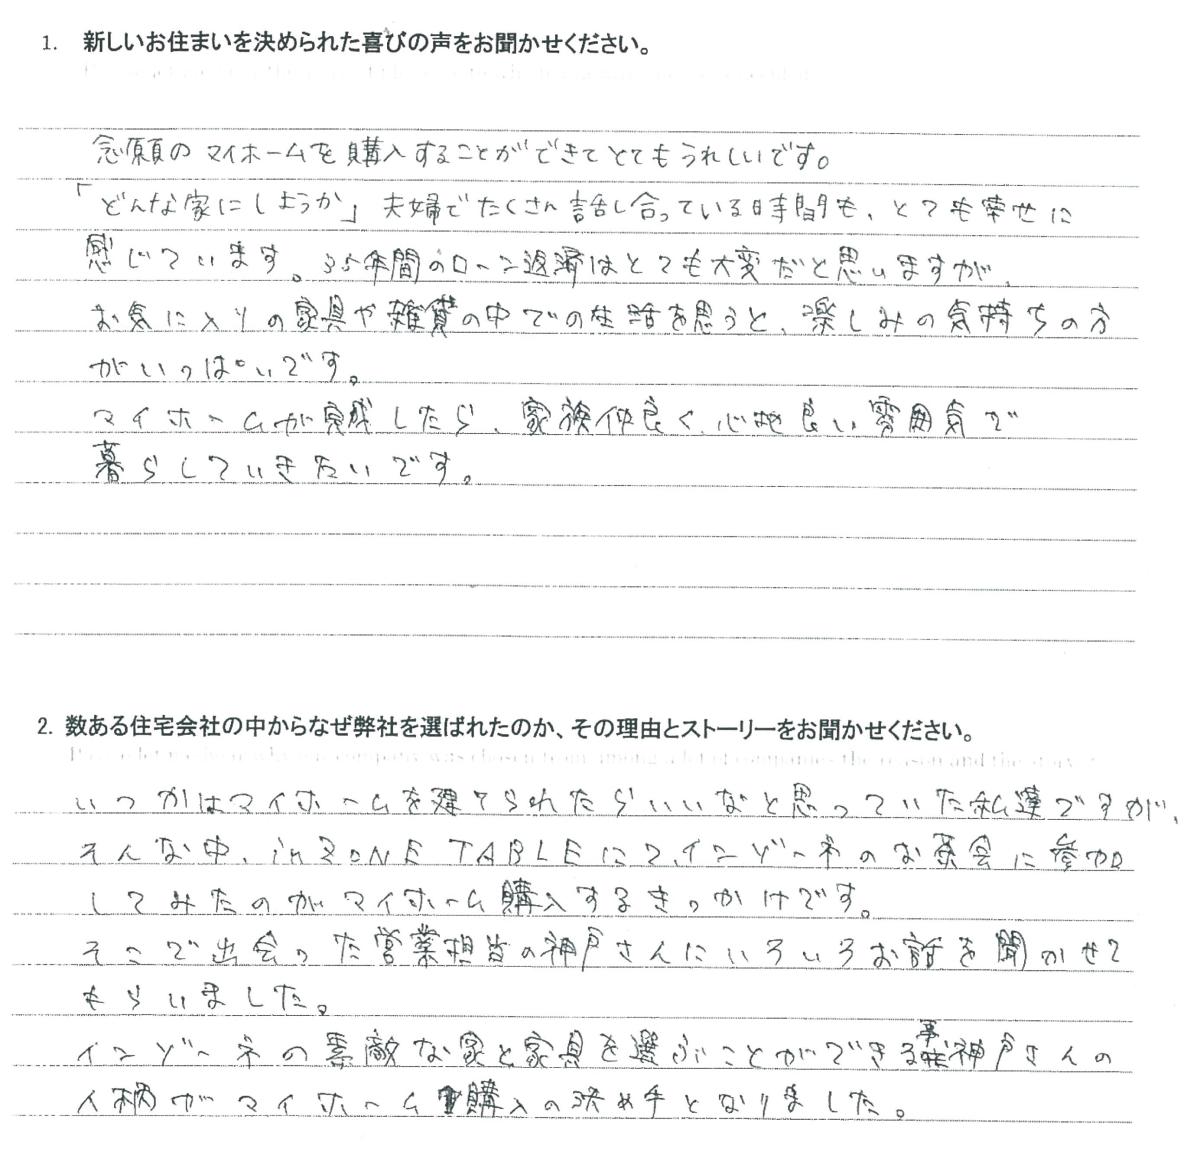 1. 新しいお住まいを決められた喜びの声をお聞かせください。
念願のマイホームを購入することができてとてもうれしいです。
「どんな家にしようか」夫婦でたくさん話し合っている時間も、とても幸せに
感じています。35年間のローン返済はとても大変だと思いますが、
お気に入りの家具や雑貨の中での生活を思うと、楽しみの気持ちの方
がいっぱいです。
マイホームが完成したら、家族仲良く、心地良い雰囲気で
暮らしていきたいです。
2. 数ある住宅会社の中からなぜ弊社を選ばれたのか、その理由とストーリーをお聞かせください。
いつかはマイホームを建てられたらいいなと思っていた私達ですが、
そんな中、in ZONE TABLEにて、インゾーネのお茶会に参加
してみたのがマイホーム購入するきっかけです。
そこで出会った営業担当の神戸さんにいろいろお話を聞かせて
もらいました。
インゾーネの素敵な家と家具を選ぶことができる事と神戸さんの
人柄がマイホーム購入の決め手となりました。